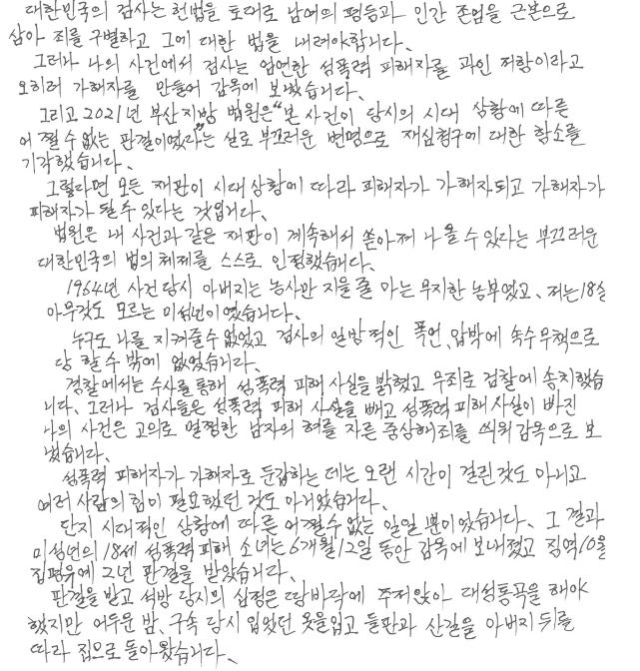 대한민국의 검사는 헌법을 토대로 남여의 평등과 인간 존엄을 근본으로
삼아 죄를 구별하고 그에 대한 법을 내려야합니다.
그러나 나의 사건에서 검사는 엄연한 성폭력 피해자를 과인 저항이라고
오히려 가해자를 만들어 감옥에 보냈습니다.
그리고 2021년 부산지방 법원은 "본 사건이 당시의 시대 상황에 따른
어쩔수 없는 판결이였다"라는 실로 부끄러운 변명으로 재심청구에 대한 항소를
기각했습니다.
그렇다면 모든 재판이 시대상황에 따라 피해자가 가해자되고 가해자가
피해자가 될수 있다는 것입니다.
법원은 내 사건과 같은 재판이 계속해서 쏟아져 나올수 있다는 부끄러운
대한민국의 법의 체제를 스스로 인정했습니다.
1964년 사건당시 아버지는 농사만 지을줄 아는 무지한 농부였고, 저는 18살
아무것도 모르는 미성년이였습니다.
누구도 나를 지켜줄수 없었고 검사의 일방적인 폭언, 압박에 속수무책으로
당할수 밖에 없었습니다.
경찰에서는 수사를 통해 성폭력 피해 사실을 밝혔고 무죄로 검찰에 송치했습
니다. 그러나 검사들은 성폭력 피해 사실을 빼고 성폭력 피해 사실이 빠진
나의 사건은 고의로 멀쩡한 남자의 혀를 자른 중상해죄를 씌워 감옥으로 보
냈습니다.
성폭력 피해자가 가해자로 둔갑하는 데는 오랜 시간이 걸린것도 아니고
여러 사람의 힘이 필요했던 것도 아니였습니다.
단지 시대적인 상황에 따른 어쩔수 없는 일일 뿐이었습니다. 그 결과
미성년의 18세 성폭력피해 소녀는 6개월12일 동안 감옥에 보내졌고 징역10월
집행유예 2년 판결을 받았습니다.
판결을 받고 석방 당시의 심정은 땅바닥에 주저앉아 대성통곡을 해야
했지만 어두운 밤, 구속 당시 입었던 옷을입고 들판과 산길을 아버지 뒤를
따라 집으로 돌아왔습니다.